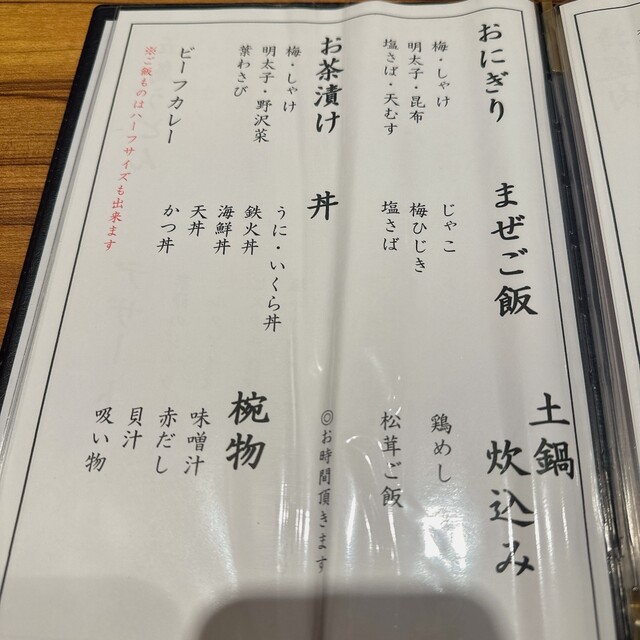 おにぎり
梅・しゃけ
明太子・昆布
塩さば・天むす
まぜご飯
じゃこ
梅ひじき
塩さば
土鍋
炊込み
鶏めし
松茸ご飯
◎お時間頂きます
お茶漬け
梅・しゃけ
明太子・野沢菜
葉わさび
丼
うに・いくら丼
鉄火丼
海鮮丼
天丼
かつ丼
椀物
味噌汁
赤だし
貝汁
吸い物
ビーフカレー
※ご飯ものはハーフサイズも出来ます